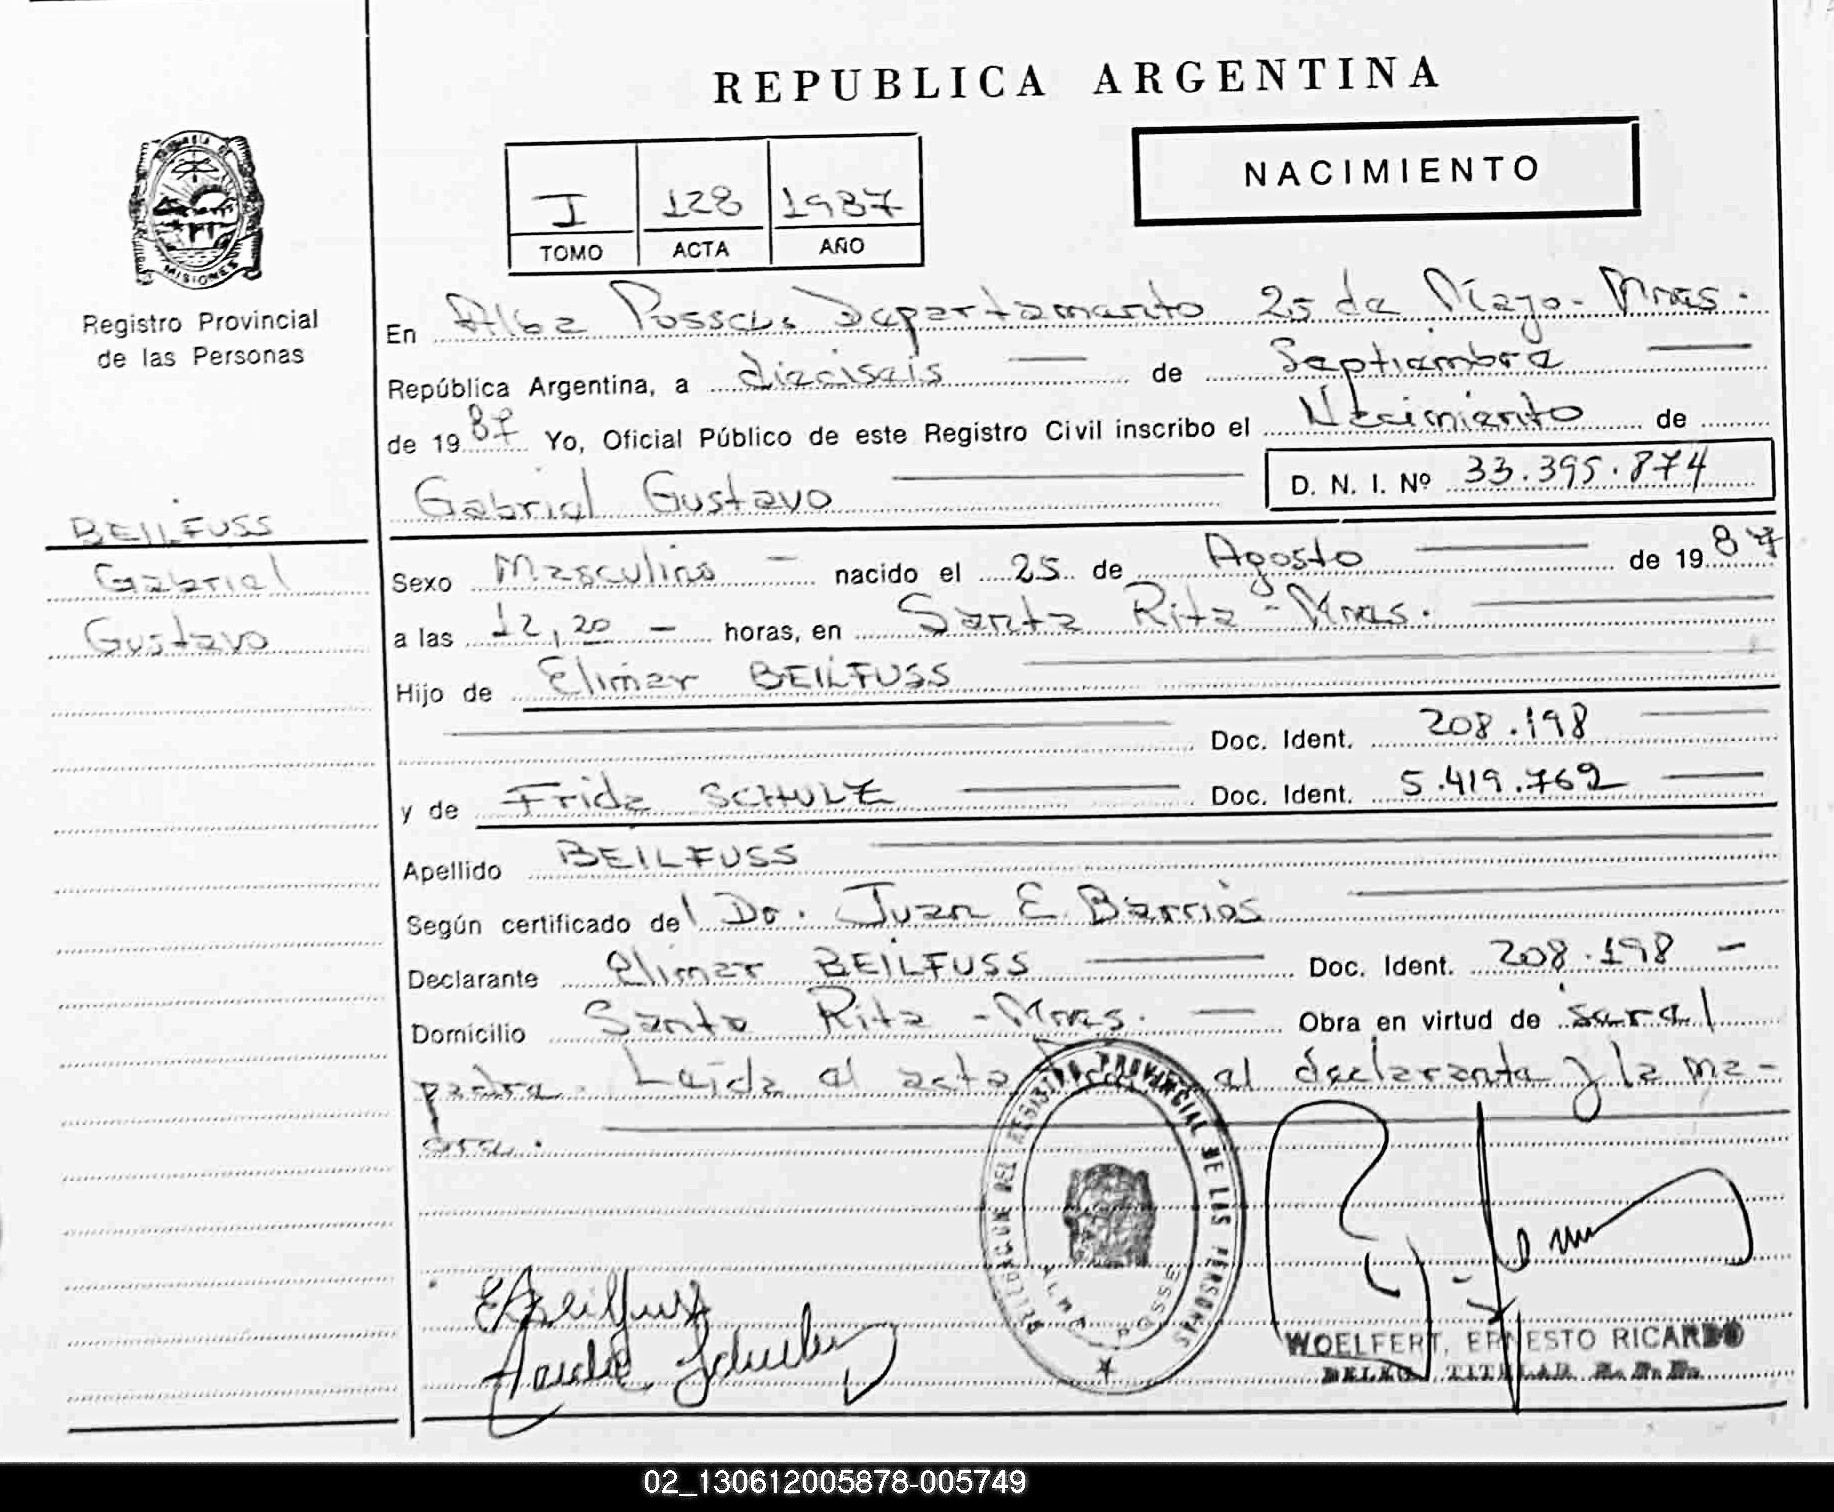 REPUBLICA ARGENTINA
NACIMIENTO
I 128 1987
TOMO ACTA AÑO
MISIONES
Registro Provincial
de las Personas
En Alba Posse, Departamento 25 de Mayo - Mnes.
República Argentina, a dieciseis de Septiembre
de 1987 Yo, Oficial Público de este Registro Civil inscribo el Nacimiento de
Gabriel Gustavo D. N. I. Nº 33.395.874
BEILFUSS
Gabriel
Gustavo
Sexo Masculino - nacido el 25 de Agosto de 1987
a las 12,20 - horas, en Santa Rita - Mnes.
Hijo de Elimar BEILFUSS
Doc. Ident. 208.198
y de Frida SCHULZ Doc. Ident. 5.419.762
Apellido BEILFUSS
Según certificado del Dr. Juan E Barrios
Declarante Elimar BEILFUSS Doc. Ident. 208.198 -
Domicilio Santa Rita - Mnes. Obra en virtud de ser el
padre. Leida el acta el declarante y la ma-
dre.
DELEGACION DEL REGISTRO PROVINCIAL DE LAS PERSONAS
ALBA POSSE
WOELFERT, ERNESTO RICARDO
DELEG. TITULAR R. P. P.
02_130612005878-005749